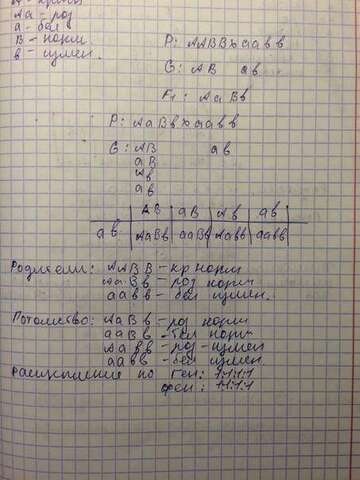 Аа - роз
а - бел
В - норм
в - измен.
Р: ААВВ х аавв
G: АВ ав
F1: АаВв
Р: АаВв х аавв
G: АВ ав
аВ
Ав
ав
АВ аВ Ав ав
ав АаВв ааВв Аавв аавв
Родители: ААВВ - кр норм
АаВв - роз норм
аавв - бел измен.
Потомство: АаВв - роз норм
ааВв - бел норм
Аавв - роз - измен
аавв - бел измен.
Расщепление по ген: 1:1:1:1
фен: 1:1:1:1